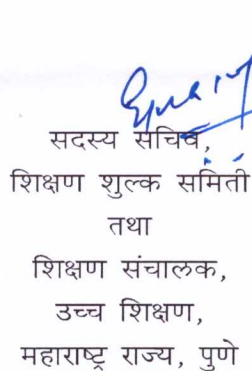 सदस्य सचिव,
शिक्षण शुल्क समिती
तथा
शिक्षण संचालक,
उच्च शिक्षण,
महाराष्ट्र राज्य, पुणे